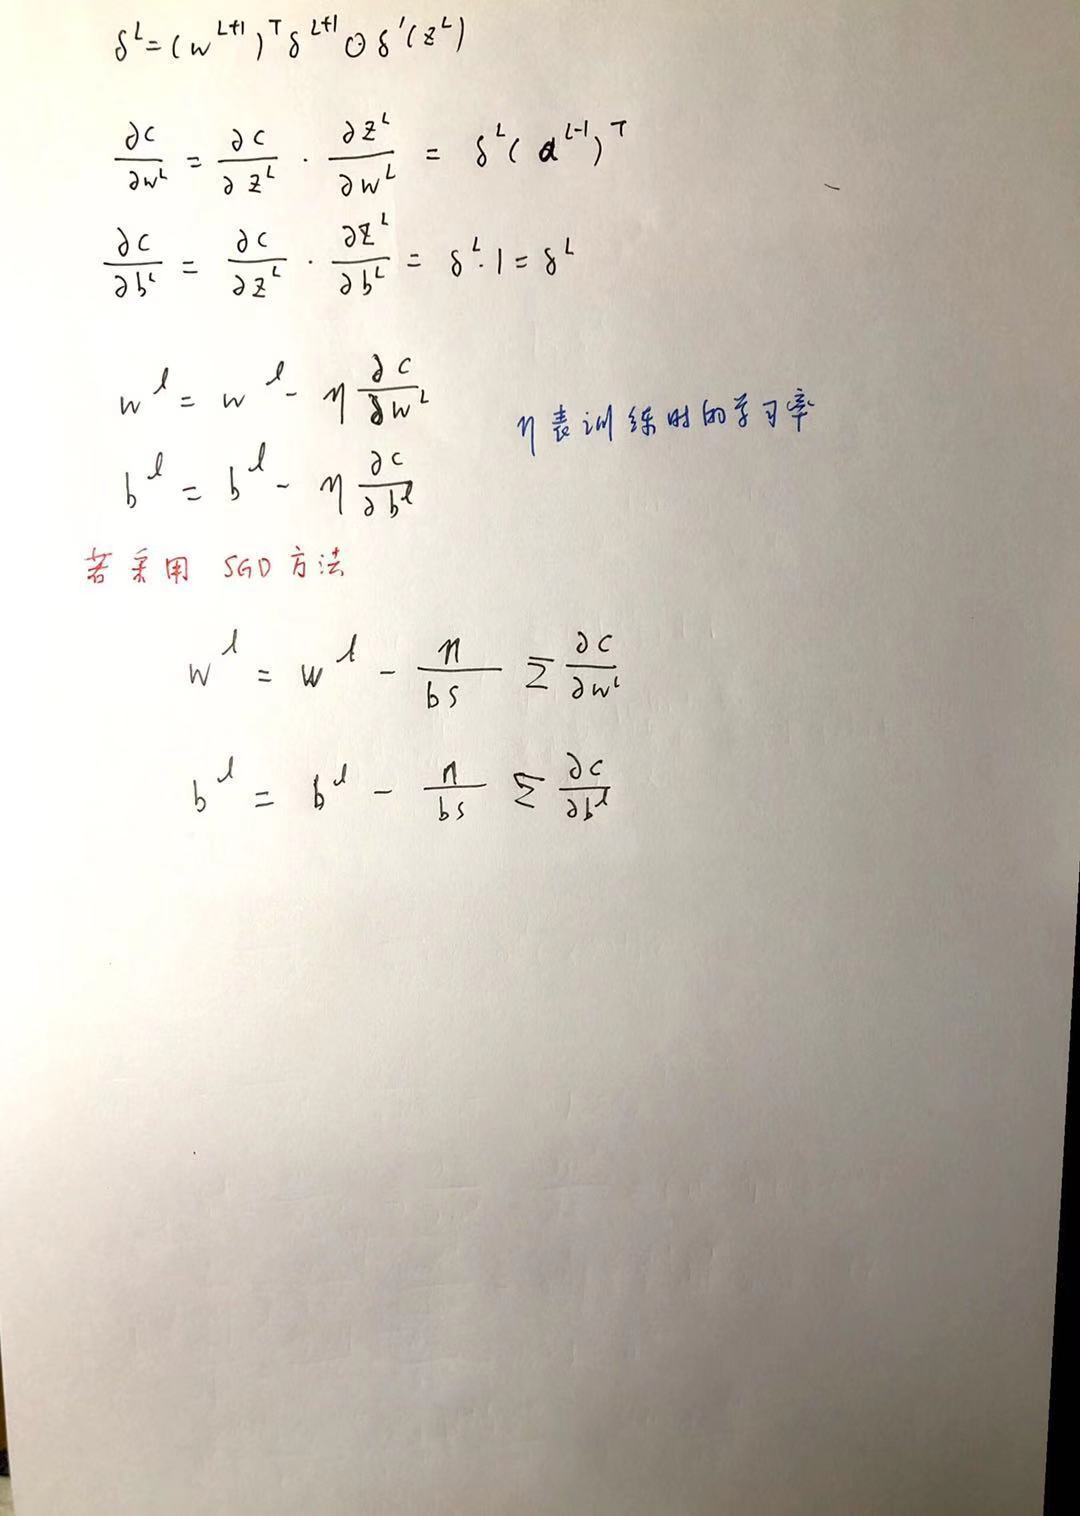 δ^L = (w^{L+1})^T δ^{L+1} ⊙ δ'(z^L)
∂c/∂w^L = ∂c/∂z^L · ∂z^L/∂w^L = δ^L (a^{L-1})^T
∂c/∂b^L = ∂c/∂z^L · ∂z^L/∂b^L = δ^L · 1 = δ^L
w^l = w^l - η ∂c/∂w^L
η表训练时的学习率
b^l = b^l - η ∂c/∂b^l
若采用 SGD 方法
w^l = w^l - η/bs Σ ∂c/∂w^L
b^l = b^l - η/bs Σ ∂c/∂b^l